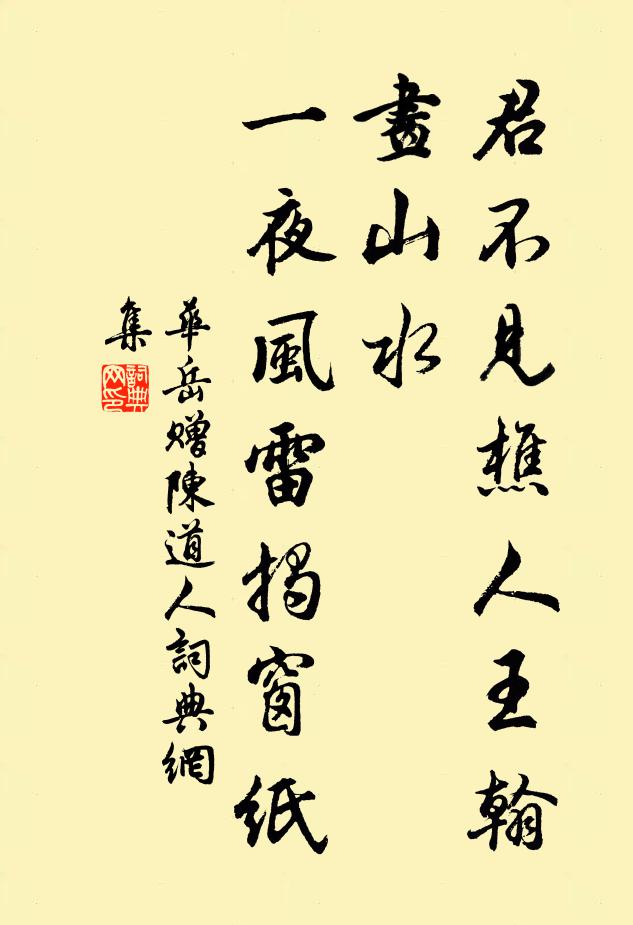 君不見樵人王翰
畫山水
一夜風雷揭窗紙
華岳贈陳道人詞典網
集
詞典網印